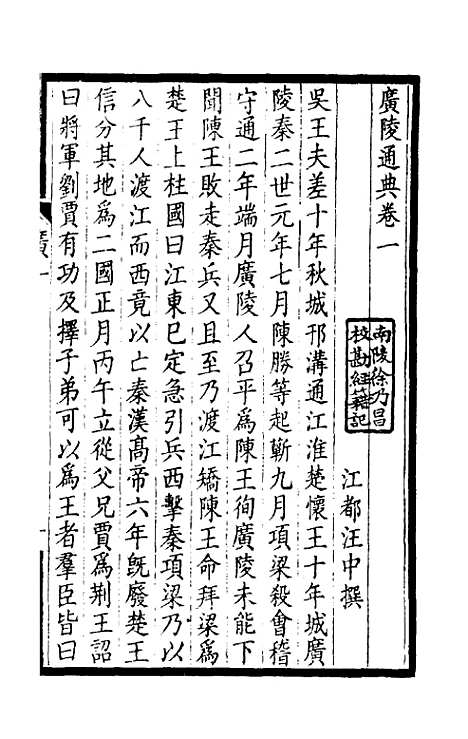 廣陵通典卷一
南陵徐乃昌
校勘經籍記
江都汪中撰
吳王夫差十年秋城邗溝通江淮楚懷王十年城廣
陵秦二世元年七月陳勝等起蘄九月項梁殺會稽
守通二年端月廣陵人召平爲陳王徇廣陵未能下
聞陳王敗走秦兵又且至乃渡江矯陳王命拜梁爲
楚王上柱國曰江東已定急引兵西擊秦項梁乃以
八千人渡江而西竟以亡秦漢高帝六年旣廢楚王
信分其地爲二國正月丙午立從父兄賈爲荆王詔
曰將軍劉賈有功及擇子弟可以爲王者羣臣皆曰
廣一